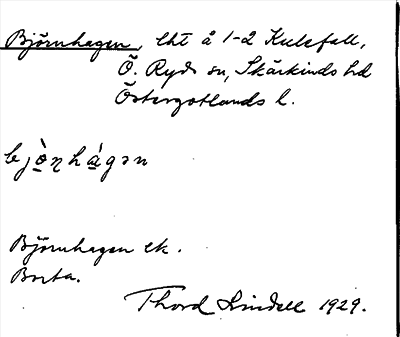 Björnhagen, lht å 1-2 Kulefall,
Ö. Ryds sn, Skärkinds hd
Östergötlands l.
bjò̠ɳhá̠gən
Björnhagen ek.
Borta.
Thord Lindell 1929.